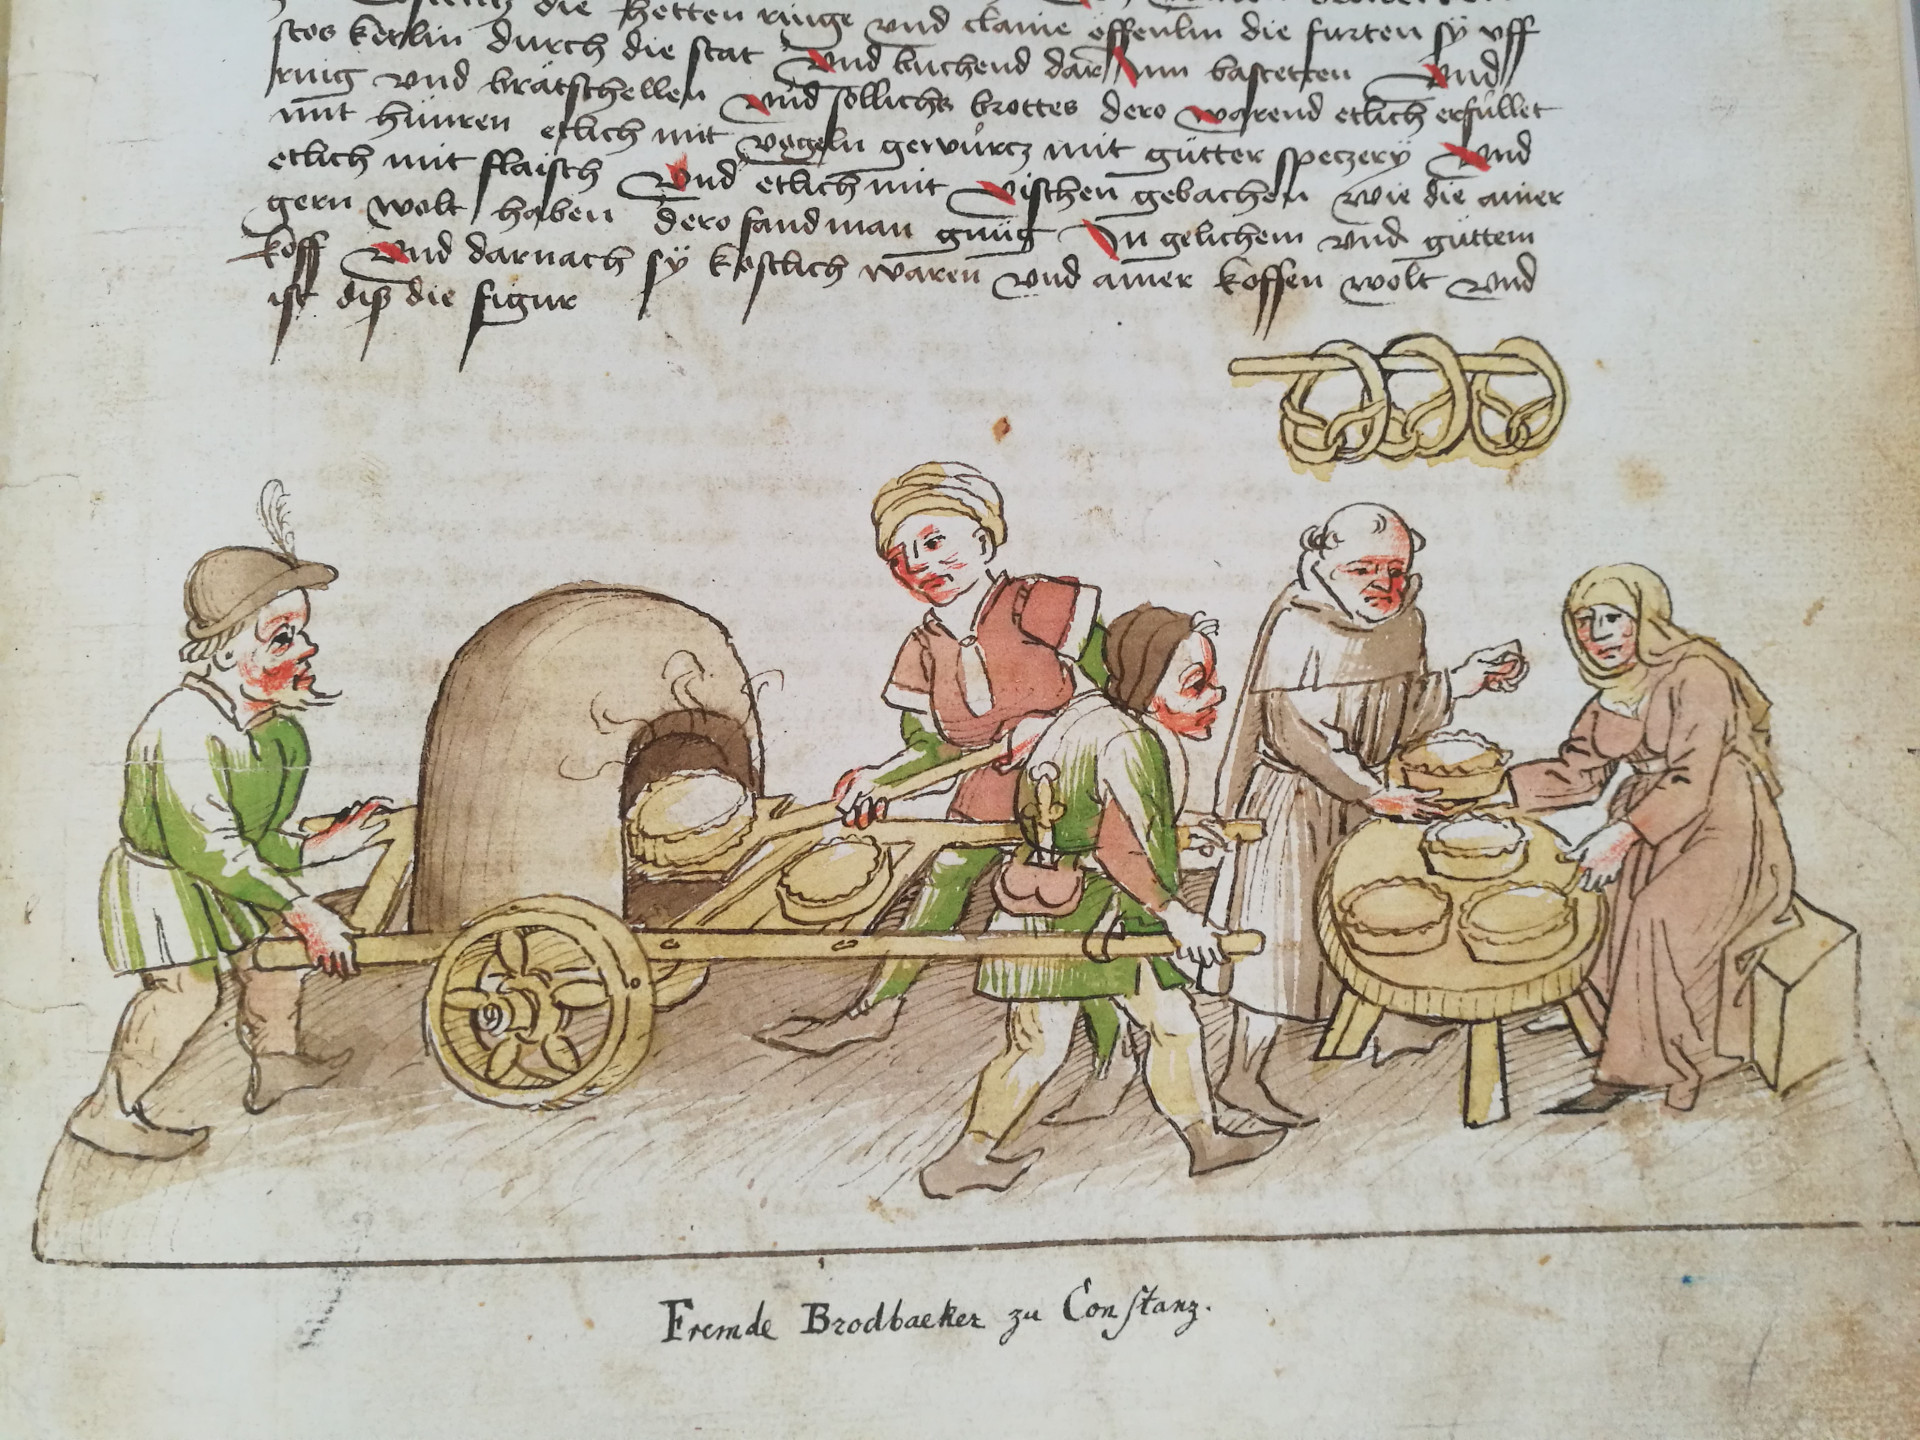 die hetten ringe vnd claine öffenlin die furten sy vff
stos kerlin durch die stat Vnd buchend dar Inn bastetten Vnd
ring vnd brätschellen Vnd söllichs brottes dero warend etlich erfüllet
mit hünren etlich mit vogeln gewürcz mit gütter speczery Vnd
etlich mit flaisch Vnd etlich mit vischen gebachen wie die ainer
gern wolt haben dero fand man gnüg In gelichem vnd güttem
koff Vnd darnach sy kostlich waren vnd ainer koffen wolt Vnd
ist diß die figur
Fremde Brodbaeker zu Constanz.